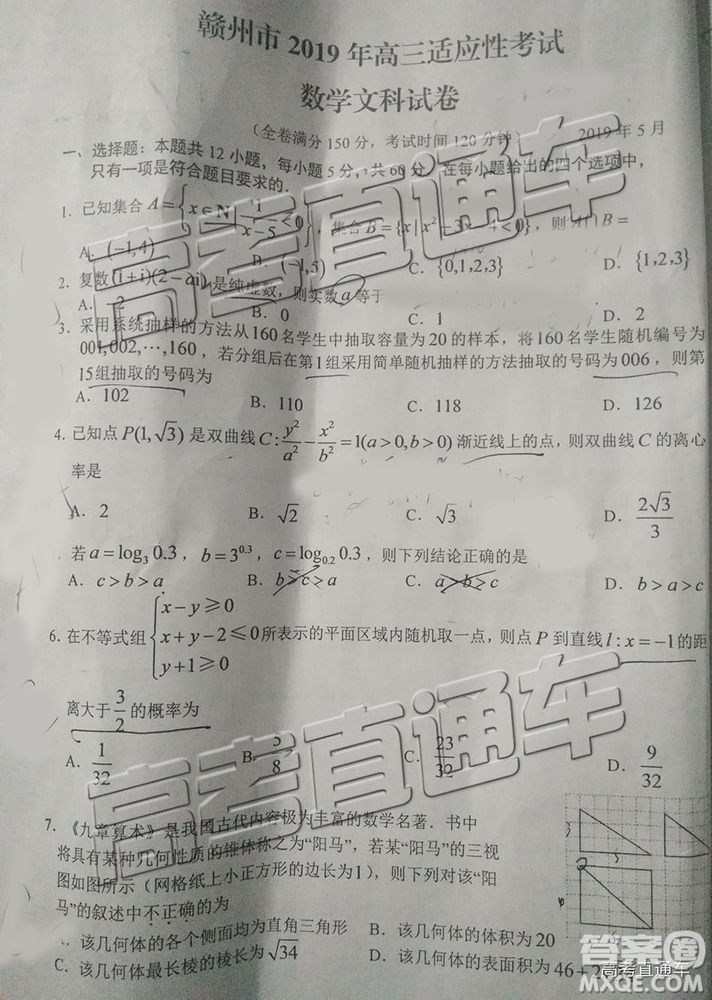 赣州市2019年高三适应性考试
数学文科试卷
(全卷满分150分，考试时间120分钟) 2019年5月
一、选择题：本题共12小题，每小题5分，共60分，在每小题给出的四个选项中，
只有一项是符合题目要求的．
1. 已知集合A={x∈N|1/(x-5)<0}，集合B={x|x²-3x-4<0}，则A∩B=
A. (-1,4) B. (-1,5) C. {0,1,2,3} D. {1,2,3}
2. 复数(1+i)(2-ai)是纯虚数，则实数a等于
A. 2 B. 0 C. 1 D. 2
3. 采用系统抽样的方法从160名学生中抽取容量为20的样本，将160名学生随机编号为
001,002,⋯,160，若分组后在第1组采用简单随机抽样的方法抽取的号码为006，则第
15组抽取的号码为
A. 102 B. 110 C. 118 D. 126
4. 已知点P(1,√3)是双曲线C:y²/a²-x²/b²=1(a>0,b>0)渐近线上的点，则双曲线C的离心
率是
A. 2 B. √2 C. √3 D. 2√3/3
若a=log₃0.3，b=3^0.3，c=log_0.2 0.3，则下列结论正确的是
A. c>b>a B. b>c>a C. a>b>c D. b>a>c
6. 在不等式组{x-y≥0 x+y-2≤0 y+1≥0 所表示的平面区域内随机取一点，则点P到直线l:x=-1的距
离大于3/2的概率为
A. 1/32 B. 5/8 C. 23/32 D. 9/32
7. 《九章算术》是我国古代内容极为丰富的数学名著．书中
将具有某种几何性质的锥体称之为“阳马”，若某“阳马”的三视
图如图所示（网格纸上小正方形的边长为1），则下列对该“阳
马”的叙述中不正确的为
A. 该几何体的各个侧面均为直角三角形 B. 该几何体的体积为20
C. 该几何体最长棱的棱长为√34 D. 该几何体的表面积为46+2
高考直通车
高考直通车
高考直通车
答案圈
高考直通车